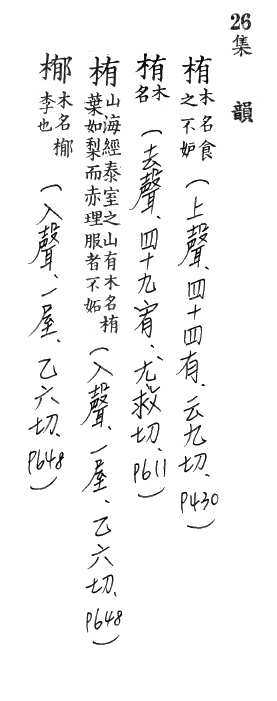 26集 韻
栯木名食之不妒（上聲、四十四有、云九切、P430）
栯木名（去聲、四十九宥、尤救切、P611）
栯山海經泰室之山有木名栯葉如梨而赤理服者不妬（入聲、一屋、乙六切、P648）
㮋木名㮋李也（入聲、一屋、乙六切、P648）